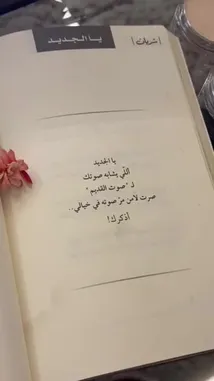 يا الجديد
يا الجديد
اللّي يشابه صوتك
لـ "صوت القديم"
صرت لامن مرّ صوته في خيالي..
أذكرك!